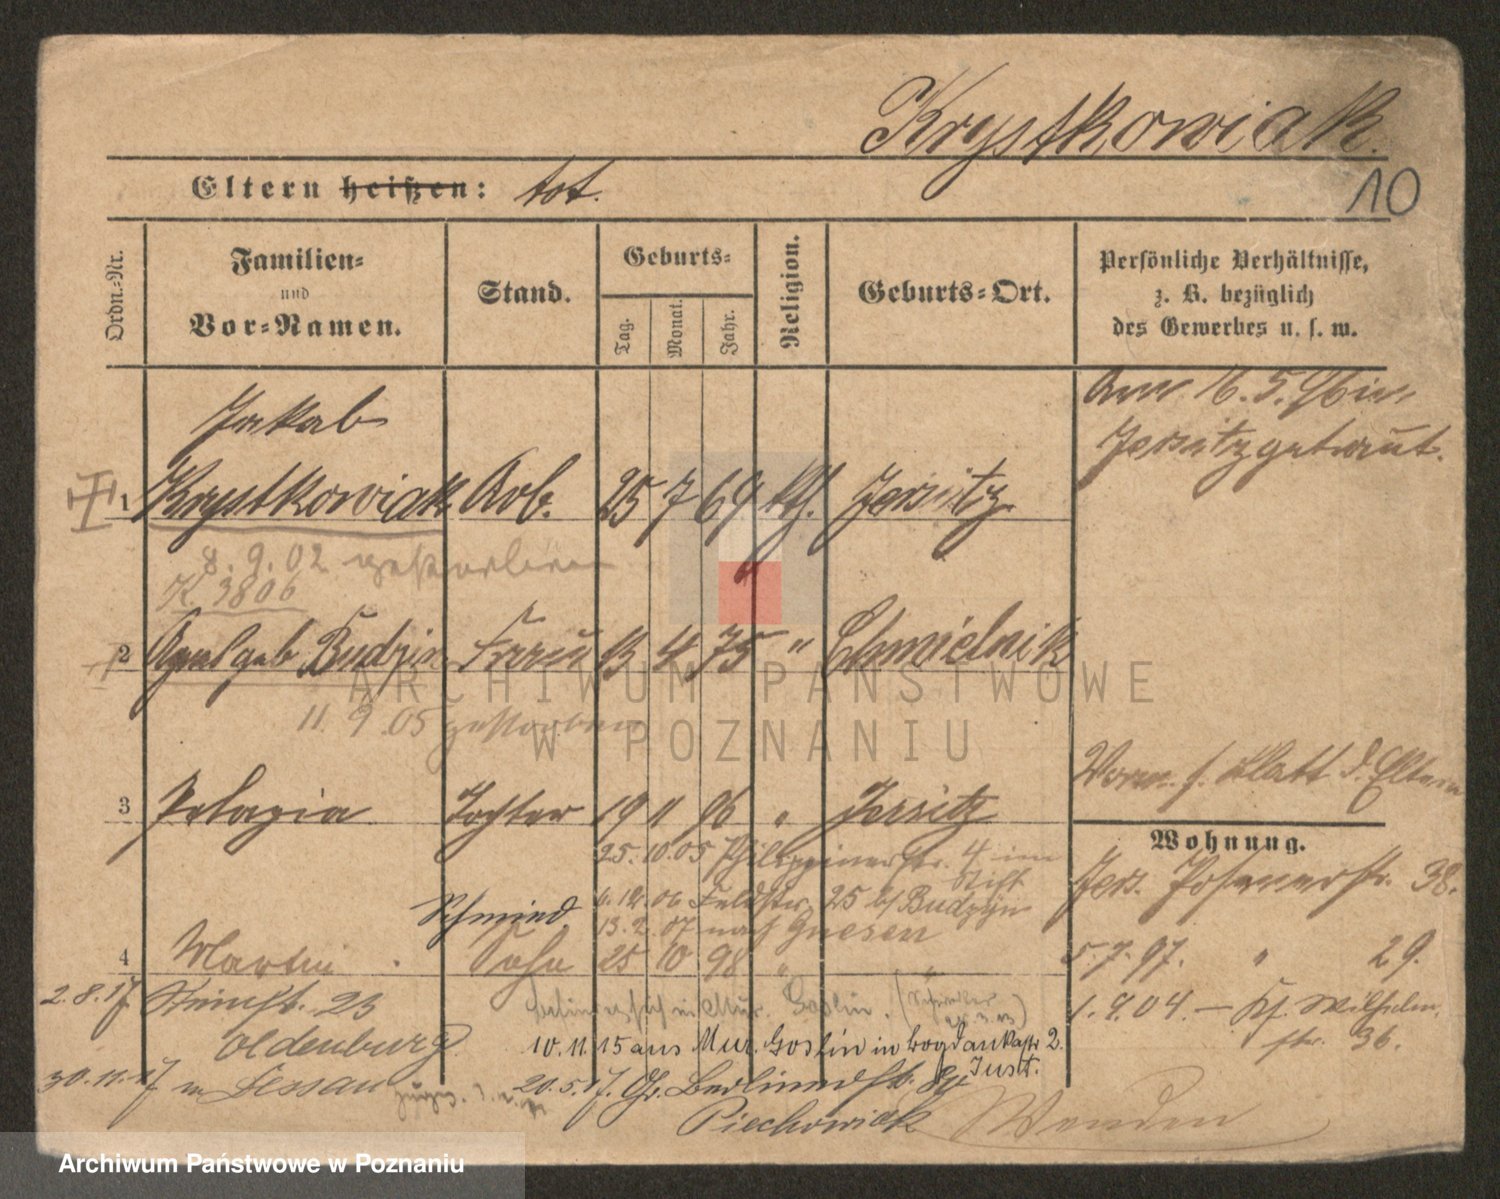 Krystkowiak.
10
Eltern heißen: tot.
Ordn.-Nr.
Familien-
und
Vor-Namen.
Stand.
Geburts-
Tag.
Monat.
Jahr.
Religion.
Geburts-Ort.
Persönliche Verhältnisse,
z. B. bezüglich
des Gewerbes u. s. w.
Am 16.5.96 in
Jersitz getraut.
Jakob
1 Krystkowiak Arb. 25 7 69 kth. Jersitz
8.9.02 gestorben
K 3806
2 geb Budzin Frau 13 4 75 " Chmielnik
11.9.05 gestorben
3 Pelagia Tochter 19 11 96 " Jersitz
25.10.05 Philippinenstr. 4 im
Stift
Schmied 6.12.06 Feldstr. 25 b/ Budzyn
13.2.07 nach Gnesen
4 Martin Sohn 25 10 98 "
2.8.17 23
Oldenburg
10.11.15 aus Mur. Goslin in Bogdankastr 2.
Just.
30.11.17 n Dessau
20.5.17.
Piechowiak
Wenden
Vorm. s. Blatt d. Eltern
Wohnung.
Jers. Posenerstr. 38.
5.7.97. " 29.
1.9.04. — Ks. Wilhelm
str. 36.
ARCHIWUM PAŃSTWOWE
W POZNANIU
Archiwum Państwowe w Poznaniu